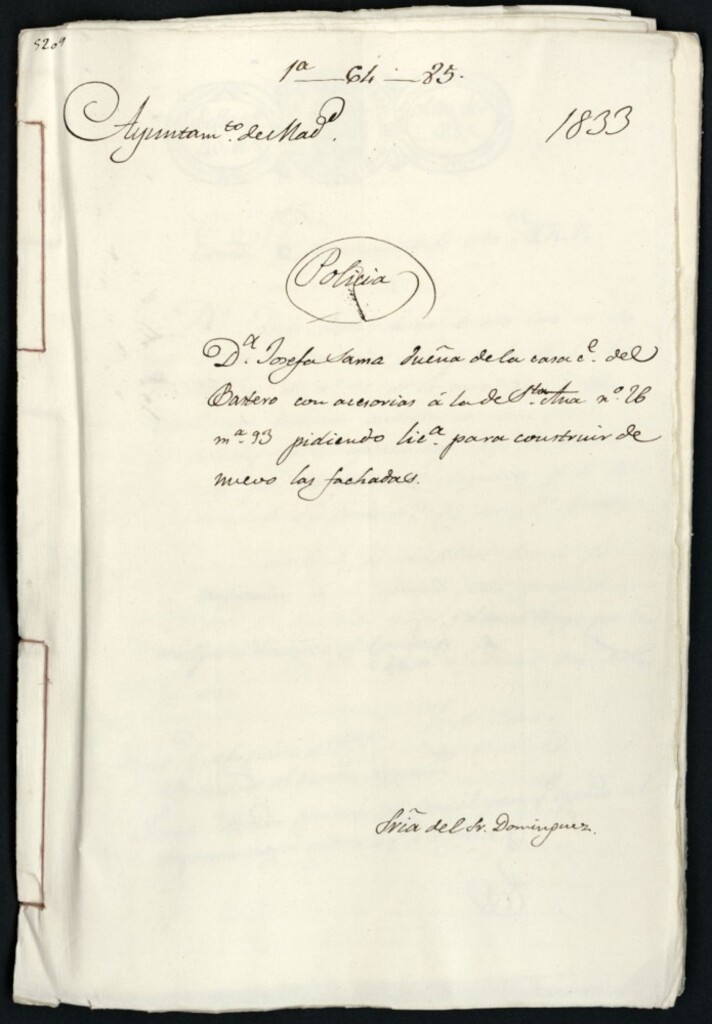 5209
1ª — 64 — 85.
Ayuntam.to de Mad.d 1833
Policia
D.ª Josefa Sama dueña de la casa c.e del
Bastero con acesorias á la de S.ta Ana nº. 26
m.ª 93 pidiendo lic.ª para construir de
nuevo las fachadas.
Sria del Sr. Dominguez.